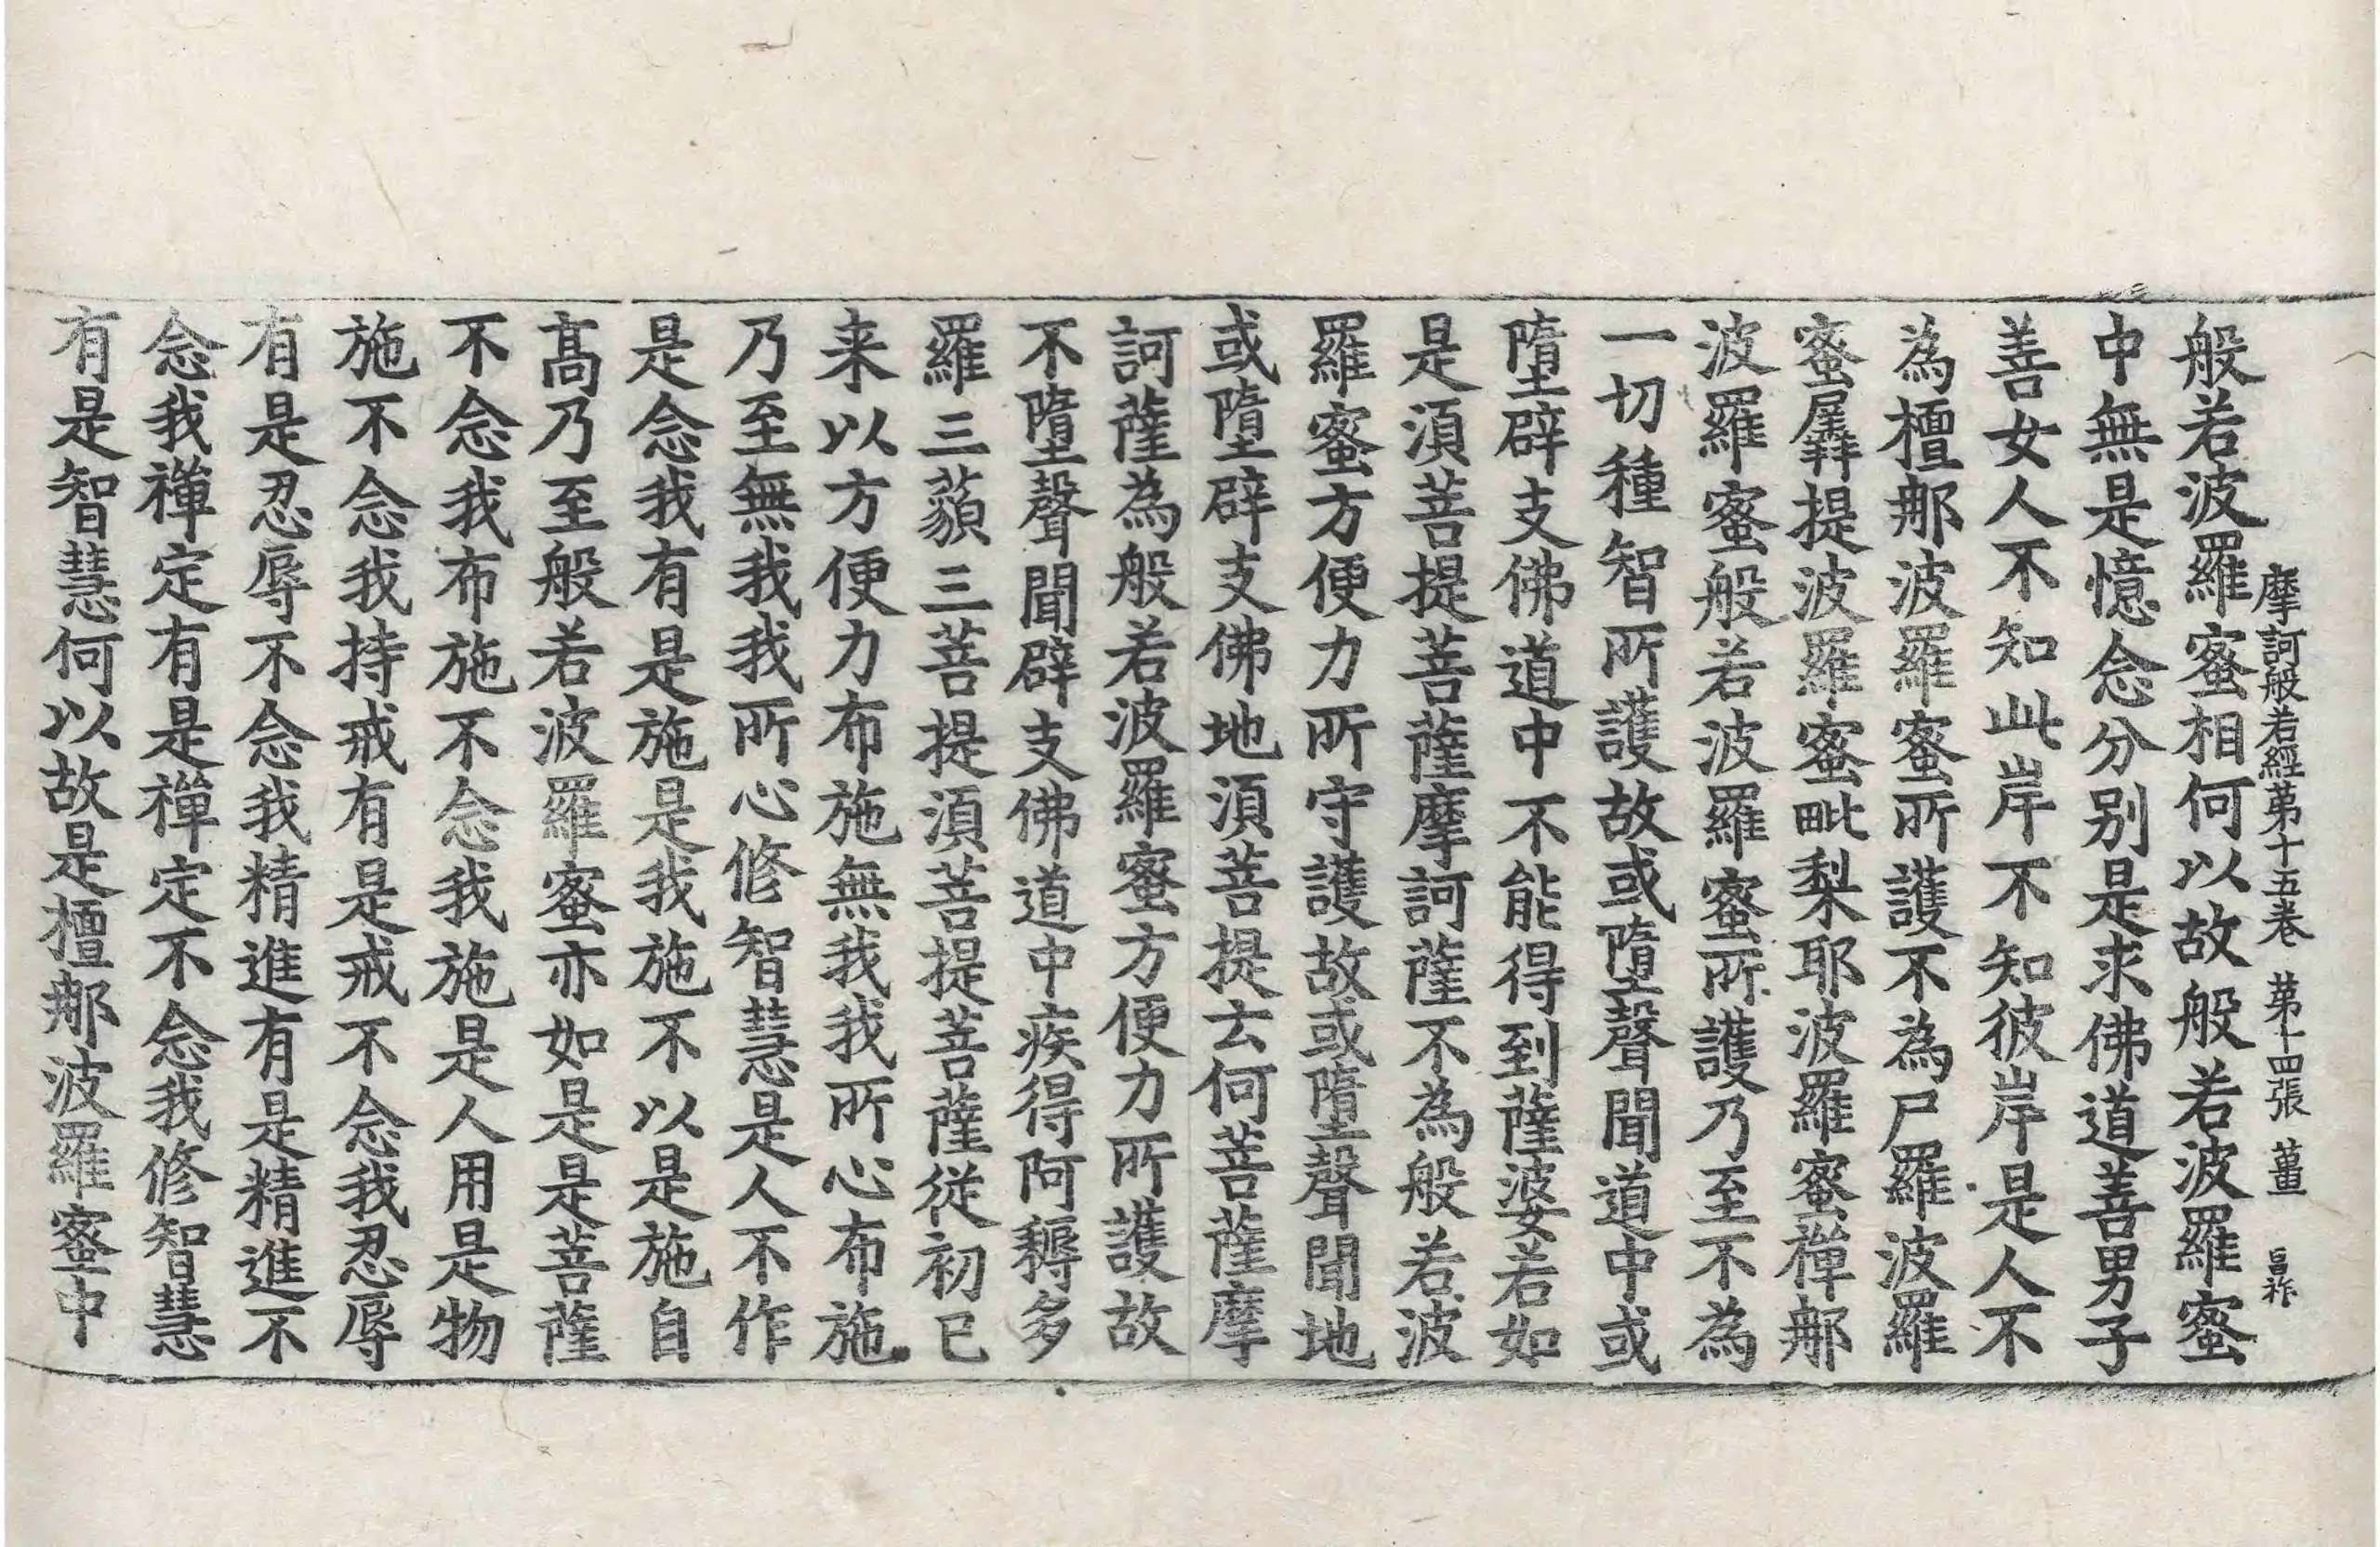 摩訶般若經第十五卷 第十四張 薑 昌祚
般若波羅蜜相何以故般若波羅蜜
中無是憶念分別是求佛道善男子
善女人不知此岸不知彼岸是人不
為檀那波羅蜜所護不為尸羅波羅
蜜羼提波羅蜜毗梨耶波羅蜜禪那
波羅蜜般若波羅蜜所護乃至不為
一切種智所護故或墮聲聞道中或
墮辟支佛道中不能得到薩婆若如
是須菩提菩薩摩訶薩不為般若波
羅蜜方便力所守護故或墮聲聞地
或墮辟支佛地須菩提云何菩薩摩
訶薩為般若波羅蜜方便力所護故
不墮聲聞辟支佛道中疾得阿耨多
羅三藐三菩提須菩提菩薩從初已
来以方便力布施無我我所心布施
乃至無我我所心修智慧是人不作
是念我有是施是我施不以是施自
高乃至般若波羅蜜亦如是是菩薩
不念我布施不念我施是人用是物
施不念我持戒有是戒不念我忍辱
有是忍辱不念我精進有是精進不
念我禪定有是禪定不念我修智慧
有是智慧何以故是檀那波羅蜜中